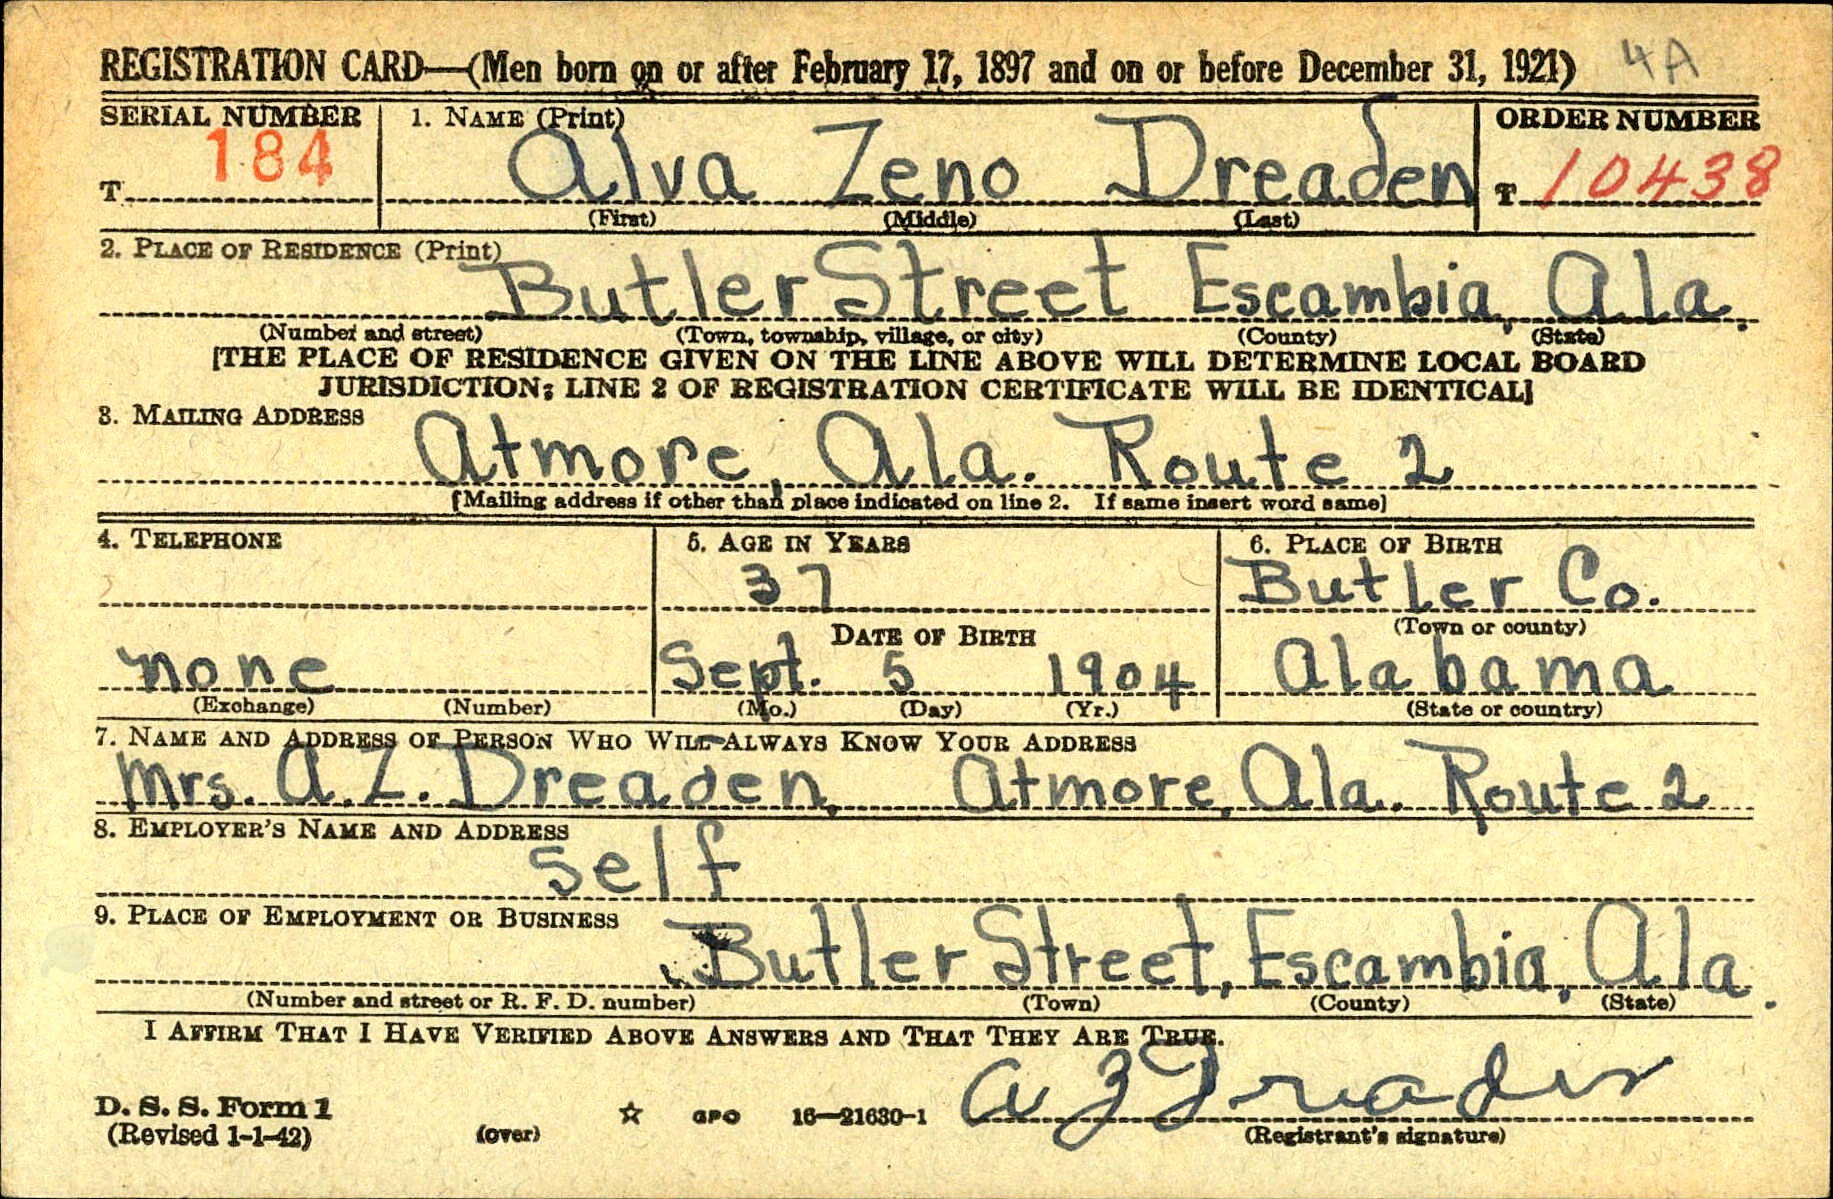 REGISTRATION CARD—(Men born on or after February 17, 1897 and on or before December 31, 1921) 4A
SERIAL NUMBER 1. NAME (Print) ORDER NUMBER
T 184 Alva Zeno Dreaden T 10438
(First) (Middle) (Last)
2. PLACE OF RESIDENCE (Print)
Butler Street Escambia, Ala.
(Number and street) (Town, township, village, or city) (County) (State)
[THE PLACE OF RESIDENCE GIVEN ON THE LINE ABOVE WILL DETERMINE LOCAL BOARD
JURISDICTION; LINE 2 OF REGISTRATION CERTIFICATE WILL BE IDENTICAL]
3. MAILING ADDRESS
Atmore, Ala. Route 2
[Mailing address if other than place indicated on line 2. If same insert word same]
4. TELEPHONE 5. AGE IN YEARS 6. PLACE OF BIRTH
37 Butler Co.
DATE OF BIRTH (Town or county)
none Sept. 5 1904 Alabama
(Exchange) (Number) (Mo.) (Day) (Yr.) (State or country)
7. NAME AND ADDRESS OF PERSON WHO WILL ALWAYS KNOW YOUR ADDRESS
Mrs. A. Z. Dreaden, Atmore, Ala. Route 2
8. EMPLOYER'S NAME AND ADDRESS
self
9. PLACE OF EMPLOYMENT OR BUSINESS
Butler Street, Escambia, Ala.
(Number and street or R. F. D. number) (Town) (County) (State)
I AFFIRM THAT I HAVE VERIFIED ABOVE ANSWERS AND THAT THEY ARE TRUE.
D. S. S. Form 1
(Revised 1-1-42) (over) ☆ GPO 16—21630-1 A Z Dreaden
(Registrant's signature)